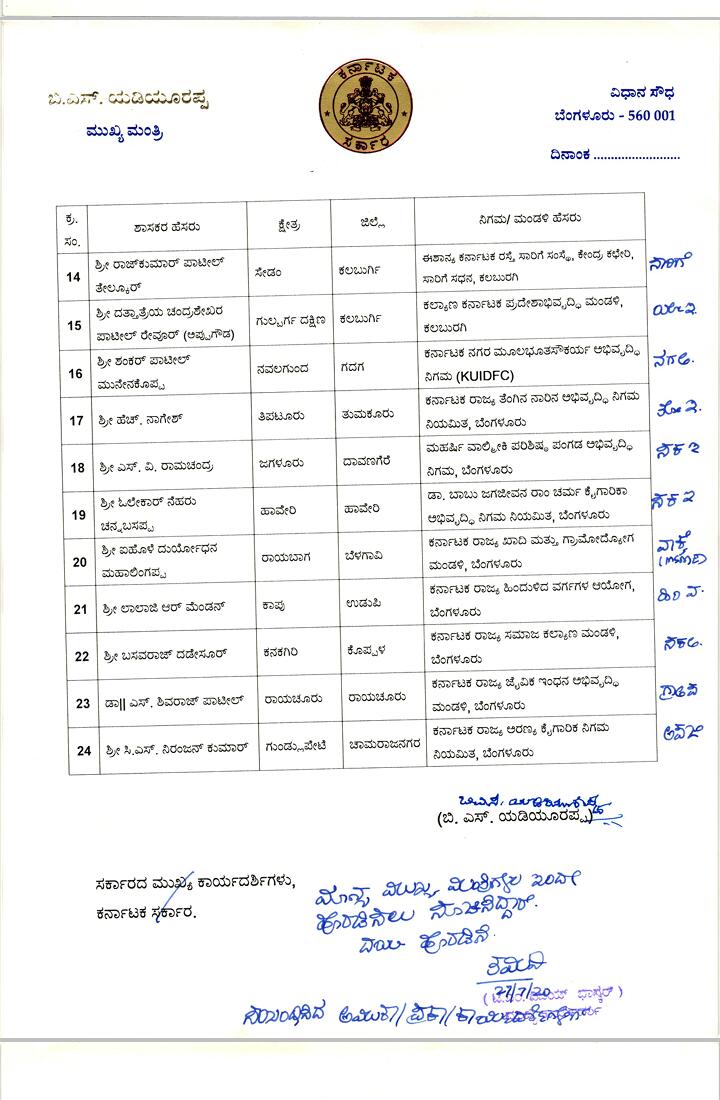 ಬಿ.ಎಸ್. ಯಡಿಯೂರಪ್ಪ
ಮುಖ್ಯ ಮಂತ್ರಿ
ಕರ್ನಾಟಕ
ಸರ್ಕಾರ
ವಿಧಾನ ಸೌಧ
ಬೆಂಗಳೂರು - 560 001
ದಿನಾಂಕ .........................
ಕ್ರ. ಸಂ. ಶಾಸಕರ ಹೆಸರು ಕ್ಷೇತ್ರ ಜಿಲ್ಲೆ ನಿಗಮ/ ಮಂಡಳಿ ಹೆಸರು
14 ಶ್ರೀ ರಾಜ್‌ಕುಮಾರ್ ಪಾಟೀಲ್ ತೇಲ್ಕೂರ್ ಸೇಡಂ ಕಲಬುರ್ಗಿ ಈಶಾನ್ಯ ಕರ್ನಾಟಕ ರಸ್ತೆ ಸಾರಿಗೆ ಸಂಸ್ಥೆ, ಕೇಂದ್ರ ಕಛೇರಿ,
ಸಾರಿಗೆ ಸಧನ, ಕಲಬುರಗಿ ಸಾರಿಗೆ
15 ಶ್ರೀ ದತ್ತಾತ್ರೆಯ ಚಂದ್ರಶೇಖರ ಪಾಟೀಲ್ ರೇವೂರ್ (ಅಪ್ಪುಗೌಡ) ಗುಲ್ಬರ್ಗ ದಕ್ಷಿಣ ಕಲಬುರ್ಗಿ ಕಲ್ಯಾಣ ಕರ್ನಾಟಕ ಪ್ರದೇಶಾಭಿವೃದ್ಧಿ ಮಂಡಳಿ,
ಕಲಬುರಗಿ
16 ಶ್ರೀ ಶಂಕರ್ ಪಾಟೀಲ್ ಮುನೇನಕೊಪ್ಪ ನವಲಗುಂದ ಗದಗ ಕರ್ನಾಟಕ ನಗರ ಮೂಲಭೂತಸೌಕರ್ಯ ಅಭಿವೃದ್ಧಿ
ನಿಗಮ (KUIDFC)
17 ಶ್ರೀ ಹೆಚ್. ನಾಗೇಶ್ ತಿಪಟೂರು ತುಮಕೂರು ಕರ್ನಾಟಕ ರಾಜ್ಯ ತೆಂಗಿನ ನಾರಿನ ಅಭಿವೃದ್ಧಿ ನಿಗಮ
ನಿಯಮಿತ, ಬೆಂಗಳೂರು
18 ಶ್ರೀ ಎಸ್. ವಿ. ರಾಮಚಂದ್ರ ಜಗಳೂರು ದಾವಣಗೆರೆ ಮಹರ್ಷಿ ವಾಲ್ಮೀಕಿ ಪರಿಶಿಷ್ಠ ಪಂಗಡ ಅಭಿವೃದ್ಧಿ
ನಿಗಮ, ಬೆಂಗಳೂರು
19 ಶ್ರೀ ಓಲೇಕಾರ್ ನೆಹರು ಚನ್ನಬಸಪ್ಪ ಹಾವೇರಿ ಹಾವೇರಿ ಡಾ. ಬಾಬು ಜಗಜೀವನ ರಾಂ ಚರ್ಮ ಕೈಗಾರಿಕಾ
ಅಭಿವೃದ್ಧಿ ನಿಗಮ ನಿಯಮಿತ, ಬೆಂಗಳೂರು
20 ಶ್ರೀ ಐಹೊಳೆ ದುರ್ಯೋಧನ ಮಹಾಲಿಂಗಪ್ಪ ರಾಯಬಾಗ ಬೆಳಗಾವಿ ಕರ್ನಾಟಕ ರಾಜ್ಯ ಖಾದಿ ಮತ್ತು ಗ್ರಾಮೋದ್ಯೋಗ
ಮಂಡಳಿ, ಬೆಂಗಳೂರು
21 ಶ್ರೀ ಲಾಲಾಜಿ ಆರ್ ಮೆಂಡನ್ ಕಾಪು ಉಡುಪಿ ಕರ್ನಾಟಕ ರಾಜ್ಯ ಹಿಂದುಳಿದ ವರ್ಗಗಳ ಆಯೋಗ,
ಬೆಂಗಳೂರು
22 ಶ್ರೀ ಬಸವರಾಜ್ ದಡೇಸೂರ್ ಕನಕಗಿರಿ ಕೊಪ್ಪಳ ಕರ್ನಾಟಕ ರಾಜ್ಯ ಸಮಾಜ ಕಲ್ಯಾಣ ಮಂಡಳಿ,
ಬೆಂಗಳೂರು
23 ಡಾ|| ಎಸ್. ಶಿವರಾಜ್ ಪಾಟೀಲ್ ರಾಯಚೂರು ರಾಯಚೂರು ಕರ್ನಾಟಕ ರಾಜ್ಯ ಜೈವಿಕ ಇಂಧನ ಅಭಿವೃದ್ಧಿ
ಮಂಡಳಿ, ಬೆಂಗಳೂರು
24 ಶ್ರೀ ಸಿ.ಎಸ್. ನಿರಂಜನ್ ಕುಮಾರ್ ಗುಂಡ್ಲುಪೇಟೆ ಚಾಮರಾಜನಗರ ಕರ್ನಾಟಕ ರಾಜ್ಯ ಅರಣ್ಯ ಕೈಗಾರಿಕ ನಿಗಮ
ನಿಯಮಿತ, ಬೆಂಗಳೂರು
(ಬಿ. ಎಸ್. ಯಡಿಯೂರಪ್ಪ)
ಸರ್ಕಾರದ ಮುಖ್ಯ ಕಾರ್ಯದರ್ಶಿಗಳು,
ಕರ್ನಾಟಕ ಸರ್ಕಾರ.
ಮಾನ್ಯ ಮುಖ್ಯ ಮಂತ್ರಿಗಳು ಇಂದೇ
ಹೊರಡಿಸಲು ಸೂಚಿಸಿದ್ದಾರೆ.
ದಯಮಾಡಿ ಹೊರಡಿಸಿ.
27/7/20